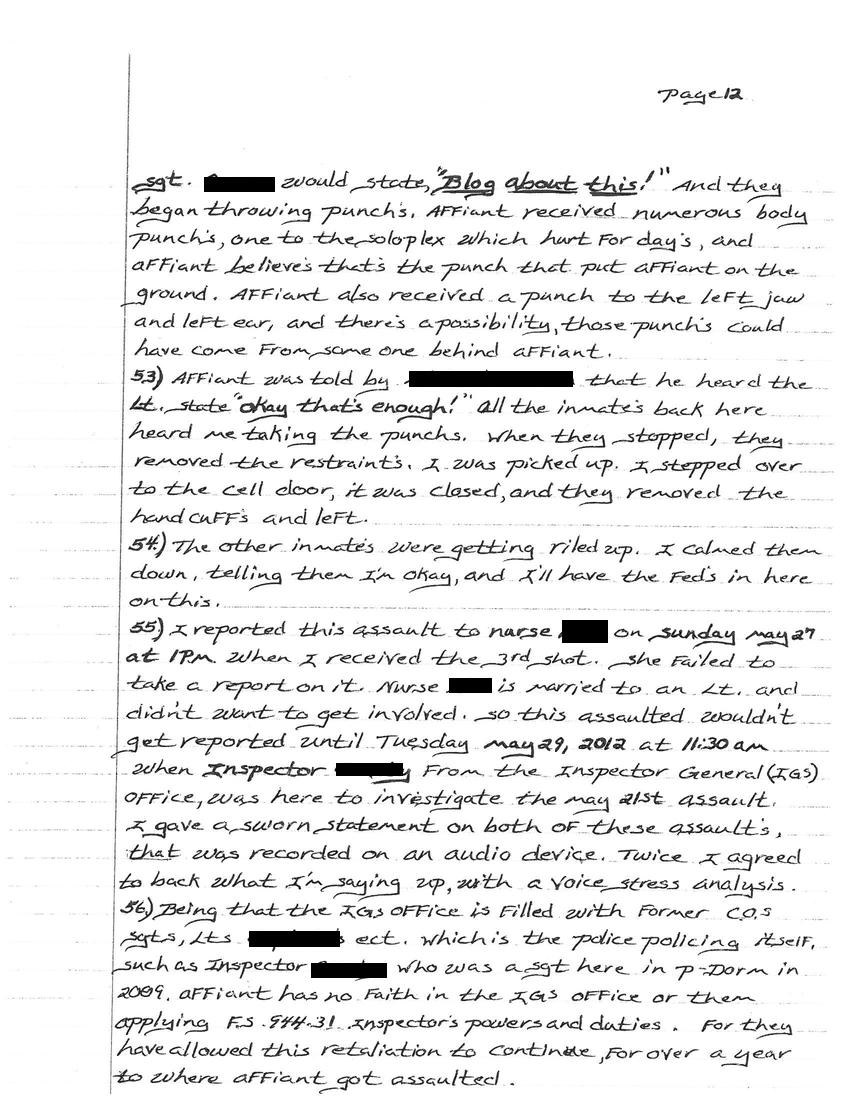 Page 12
sgt. would state, "Blog about this!" And they
began throwing punch's. AFFiant received numerous body
punch's, one to the soloplex which hurt For day's, and
aFFiant believe's that's the punch that put aFFiant on the
ground. AFFiant also received a punch to the left jaw
and left ear, and there's a possibility, those punch's could
have come From some one behind aFFiant.
53.) AFFiant was told by that he heard the
Lt. state "okay that's enough!" All the inmate's back here
heard me taking the punchs. When they stopped, they
removed the restraint's. I was picked up. I stepped over
to the cell door, it was closed, and they removed the
handcuFF's and left.
54.) The other inmate's were getting riled up. I calmed them
down, telling them I'm okay, and I'll have the Fed's in here
on this.
55.) I reported this assault to nurse on sunday may 27
at 1PM. When I received the 3rd shot. She Failed to
take a report on it. Nurse is married to an Lt. and
didn't want to get involved. So this assaulted wouldn't
get reported until Tuesday may 29, 2012 at 11:30 am
When Inspector From the Inspector General (IGS)
OFFice, was here to investigate the may 21st assault.
I gave a sworn statement on both of these assault's,
that was recorded on an audio device. Twice I agreed
to back what I'm saying up, with a voice stress analysis.
56.) Being that the IGS OFFice is Filled with Former C.O.s
sgts, Lts ect. which is the police policing itself,
such as Inspector who was a sgt here in P-Dorm in
2009. AFFiant has no Faith in the IGS OFFice or them
applying F.S. 944.31 Inspector's powers and duties. For they
have allowed this retaliation to continue, For over a year
to where aFFiant got assaulted.